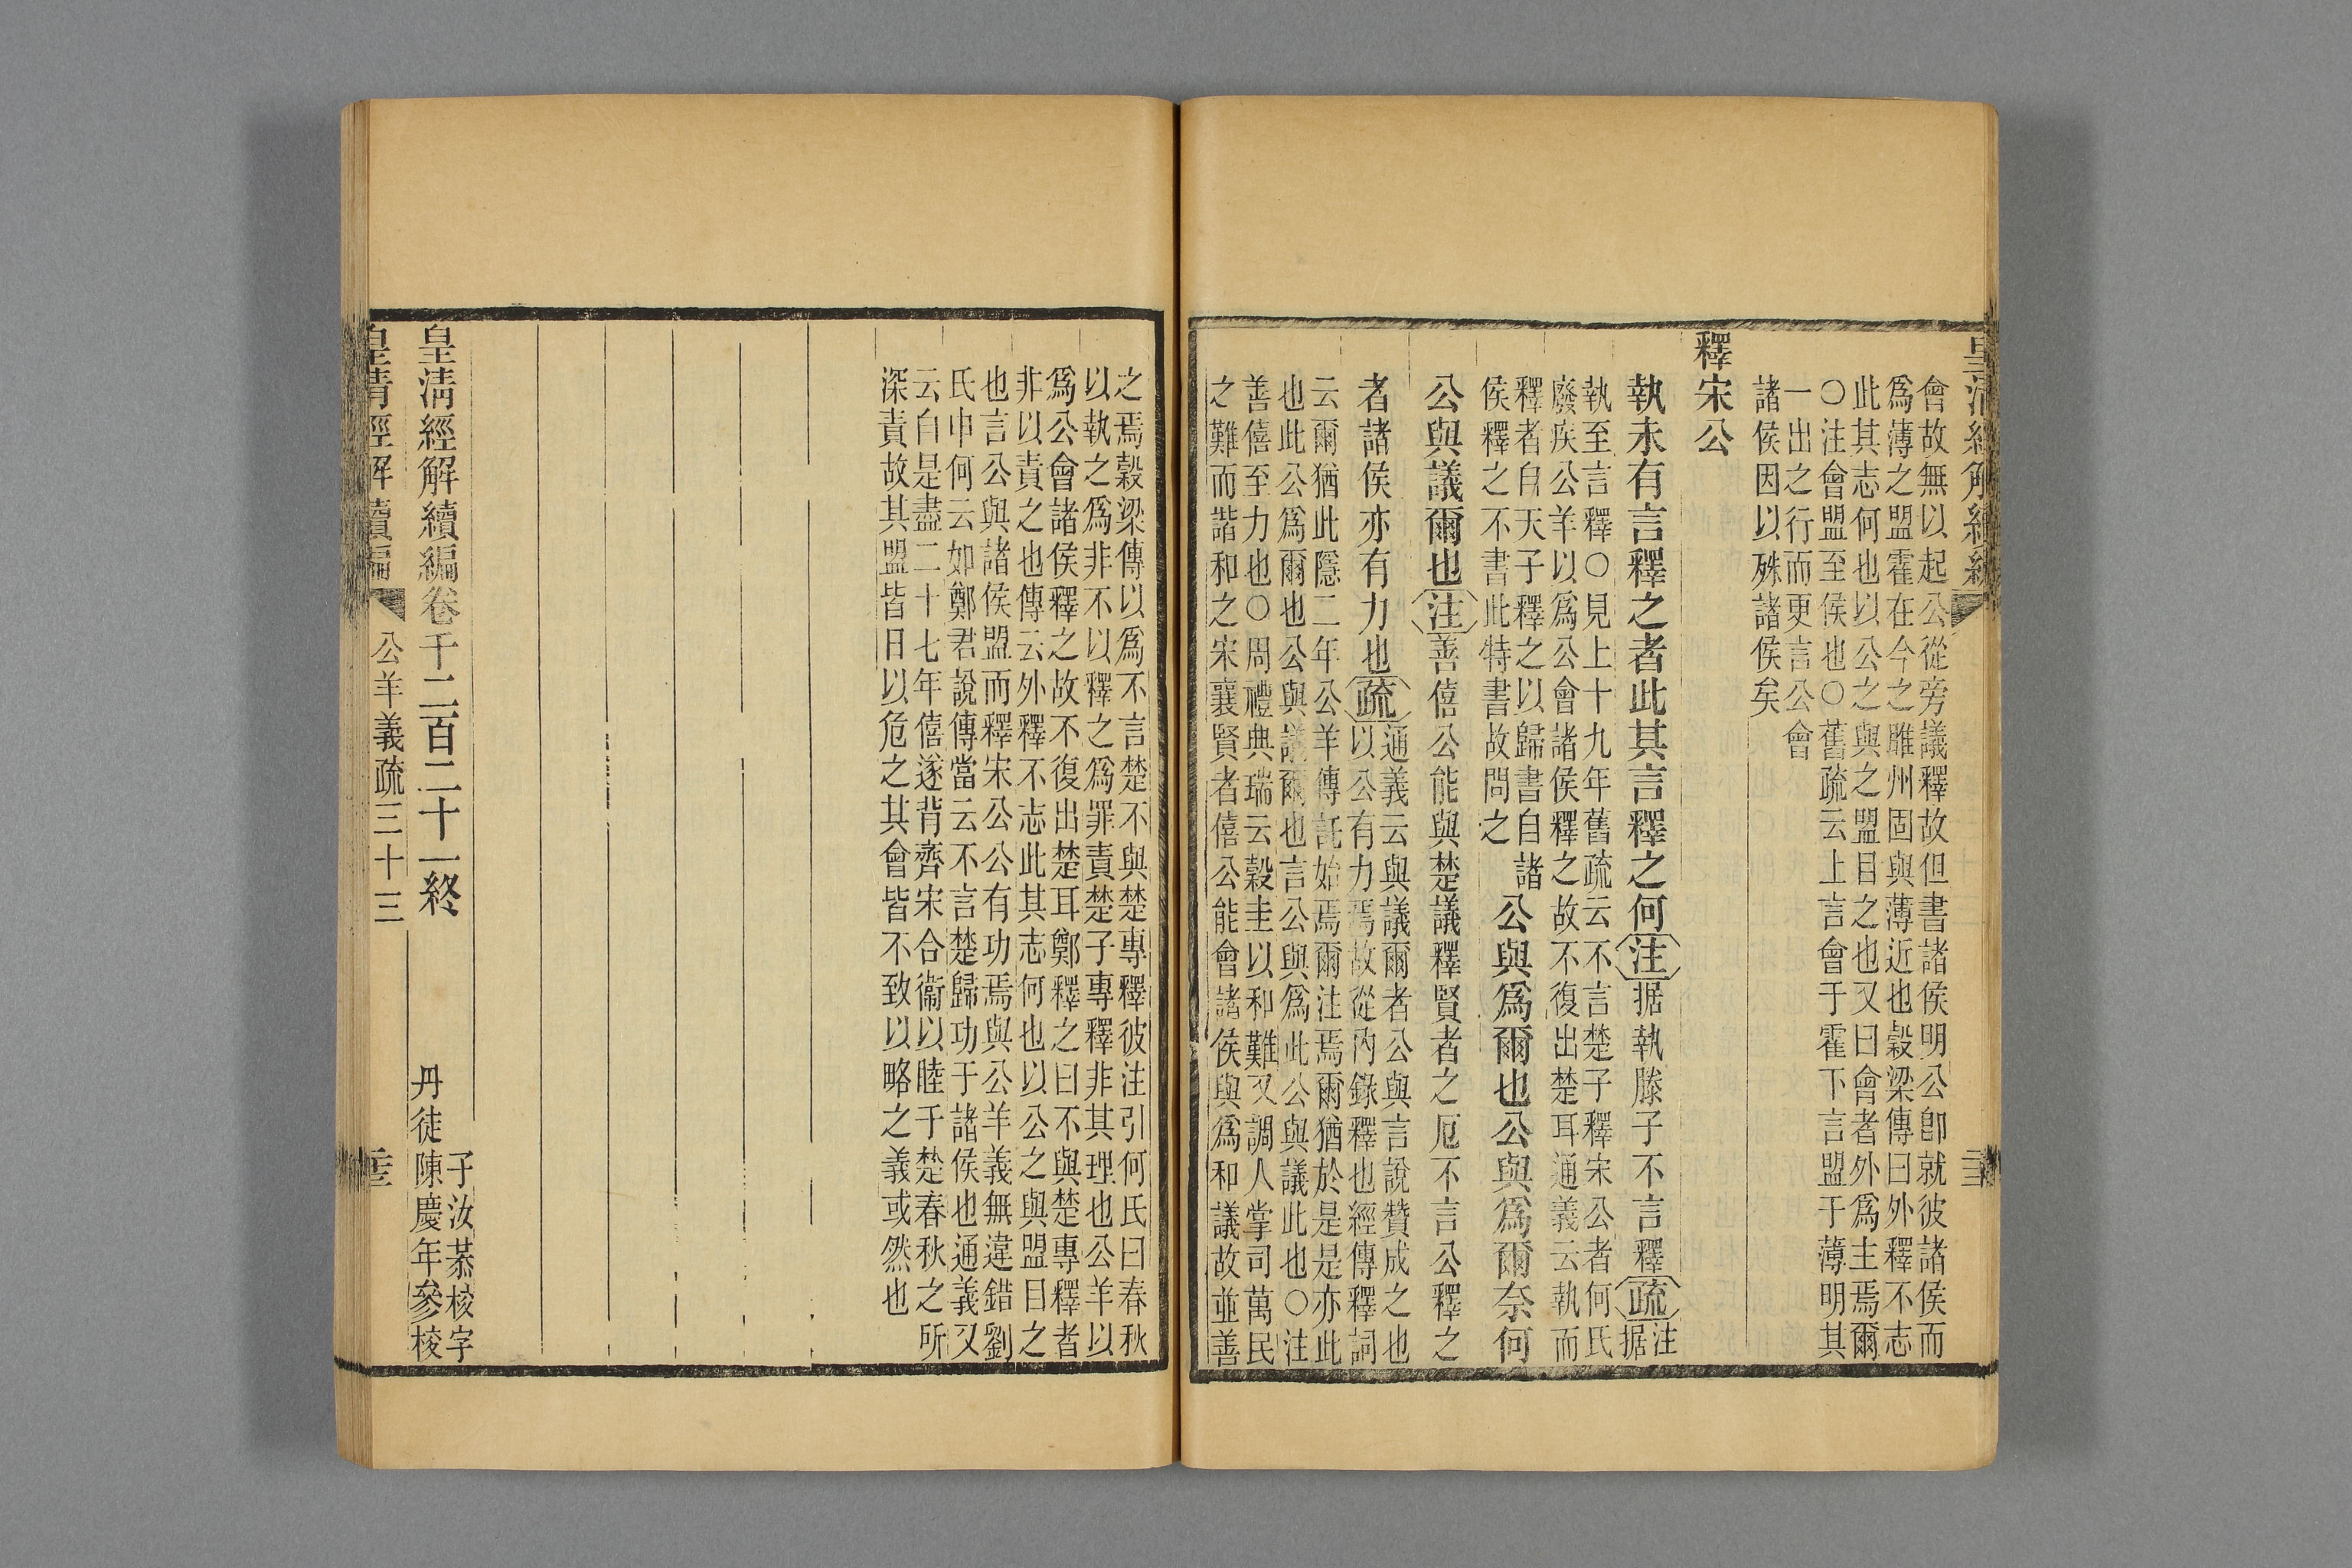 皇清經解續編
會故無以起公從旁議釋故但書諸侯明公卽就彼諸侯而
爲薄之盟霍在今之雎州固與薄近也穀梁傳曰外釋不志
此其志何也以公之與之盟目之也又曰會者外爲主焉爾
○注會盟至侯也○舊疏云上言會于霍下言盟于薄明其
一出之行而更言公會
諸侯因以殊諸侯矣
釋宋公
執未有言釋之者此其言釋之何注据執滕子不言釋疏注据
執至言釋○見上十九年舊疏云不言楚子釋宋公者何氏
廢疾公羊以爲公會諸侯釋之故不復出楚耳通義云執而
釋者自天子釋之以歸書自諸
侯釋之不書此特書故問之
公與爲爾也公與爲爾奈何
公與議爾也注善僖公能與楚議釋賢者之厄不言公釋之
者諸侯亦有力也疏通義云與議爾者公與言說贊成之也
以公有力焉故從內錄釋也經傳釋詞
云爾猶此隱二年公羊傳託始焉爾注焉爾猶於是是亦此
也此公爲爾也公與議爾也言公與爲此公與議此也○注
善僖至力也○周禮典瑞云穀圭以和難又調人掌司萬民
之難而諧和之宋襄賢者僖公能會諸侯與爲和議故並善
之焉穀梁傳以爲不言楚不與楚專釋彼注引何氏曰春秋
以執之爲非不以釋之爲罪責楚子專釋非其理也公羊以
爲公會諸侯釋之故不復出楚耳鄭釋之曰不與楚專釋者
非以責之也傳云外釋不志此其志何也以公之與盟目之
也言公與諸侯盟而釋宋公公有功焉與公羊義無違錯劉
氏申何云如鄭君說傳當云不言楚歸功于諸侯也通義又
云自是盡二十七年僖遂背齊宋合衞以睦于楚春秋之所
深責故其盟皆日以危之其會皆不致以略之義或然也
皇清經解續編卷千二百二十一終
子汝恭校字
丹徒陳慶年參校
皇清經解續編
公羊義疏三十三